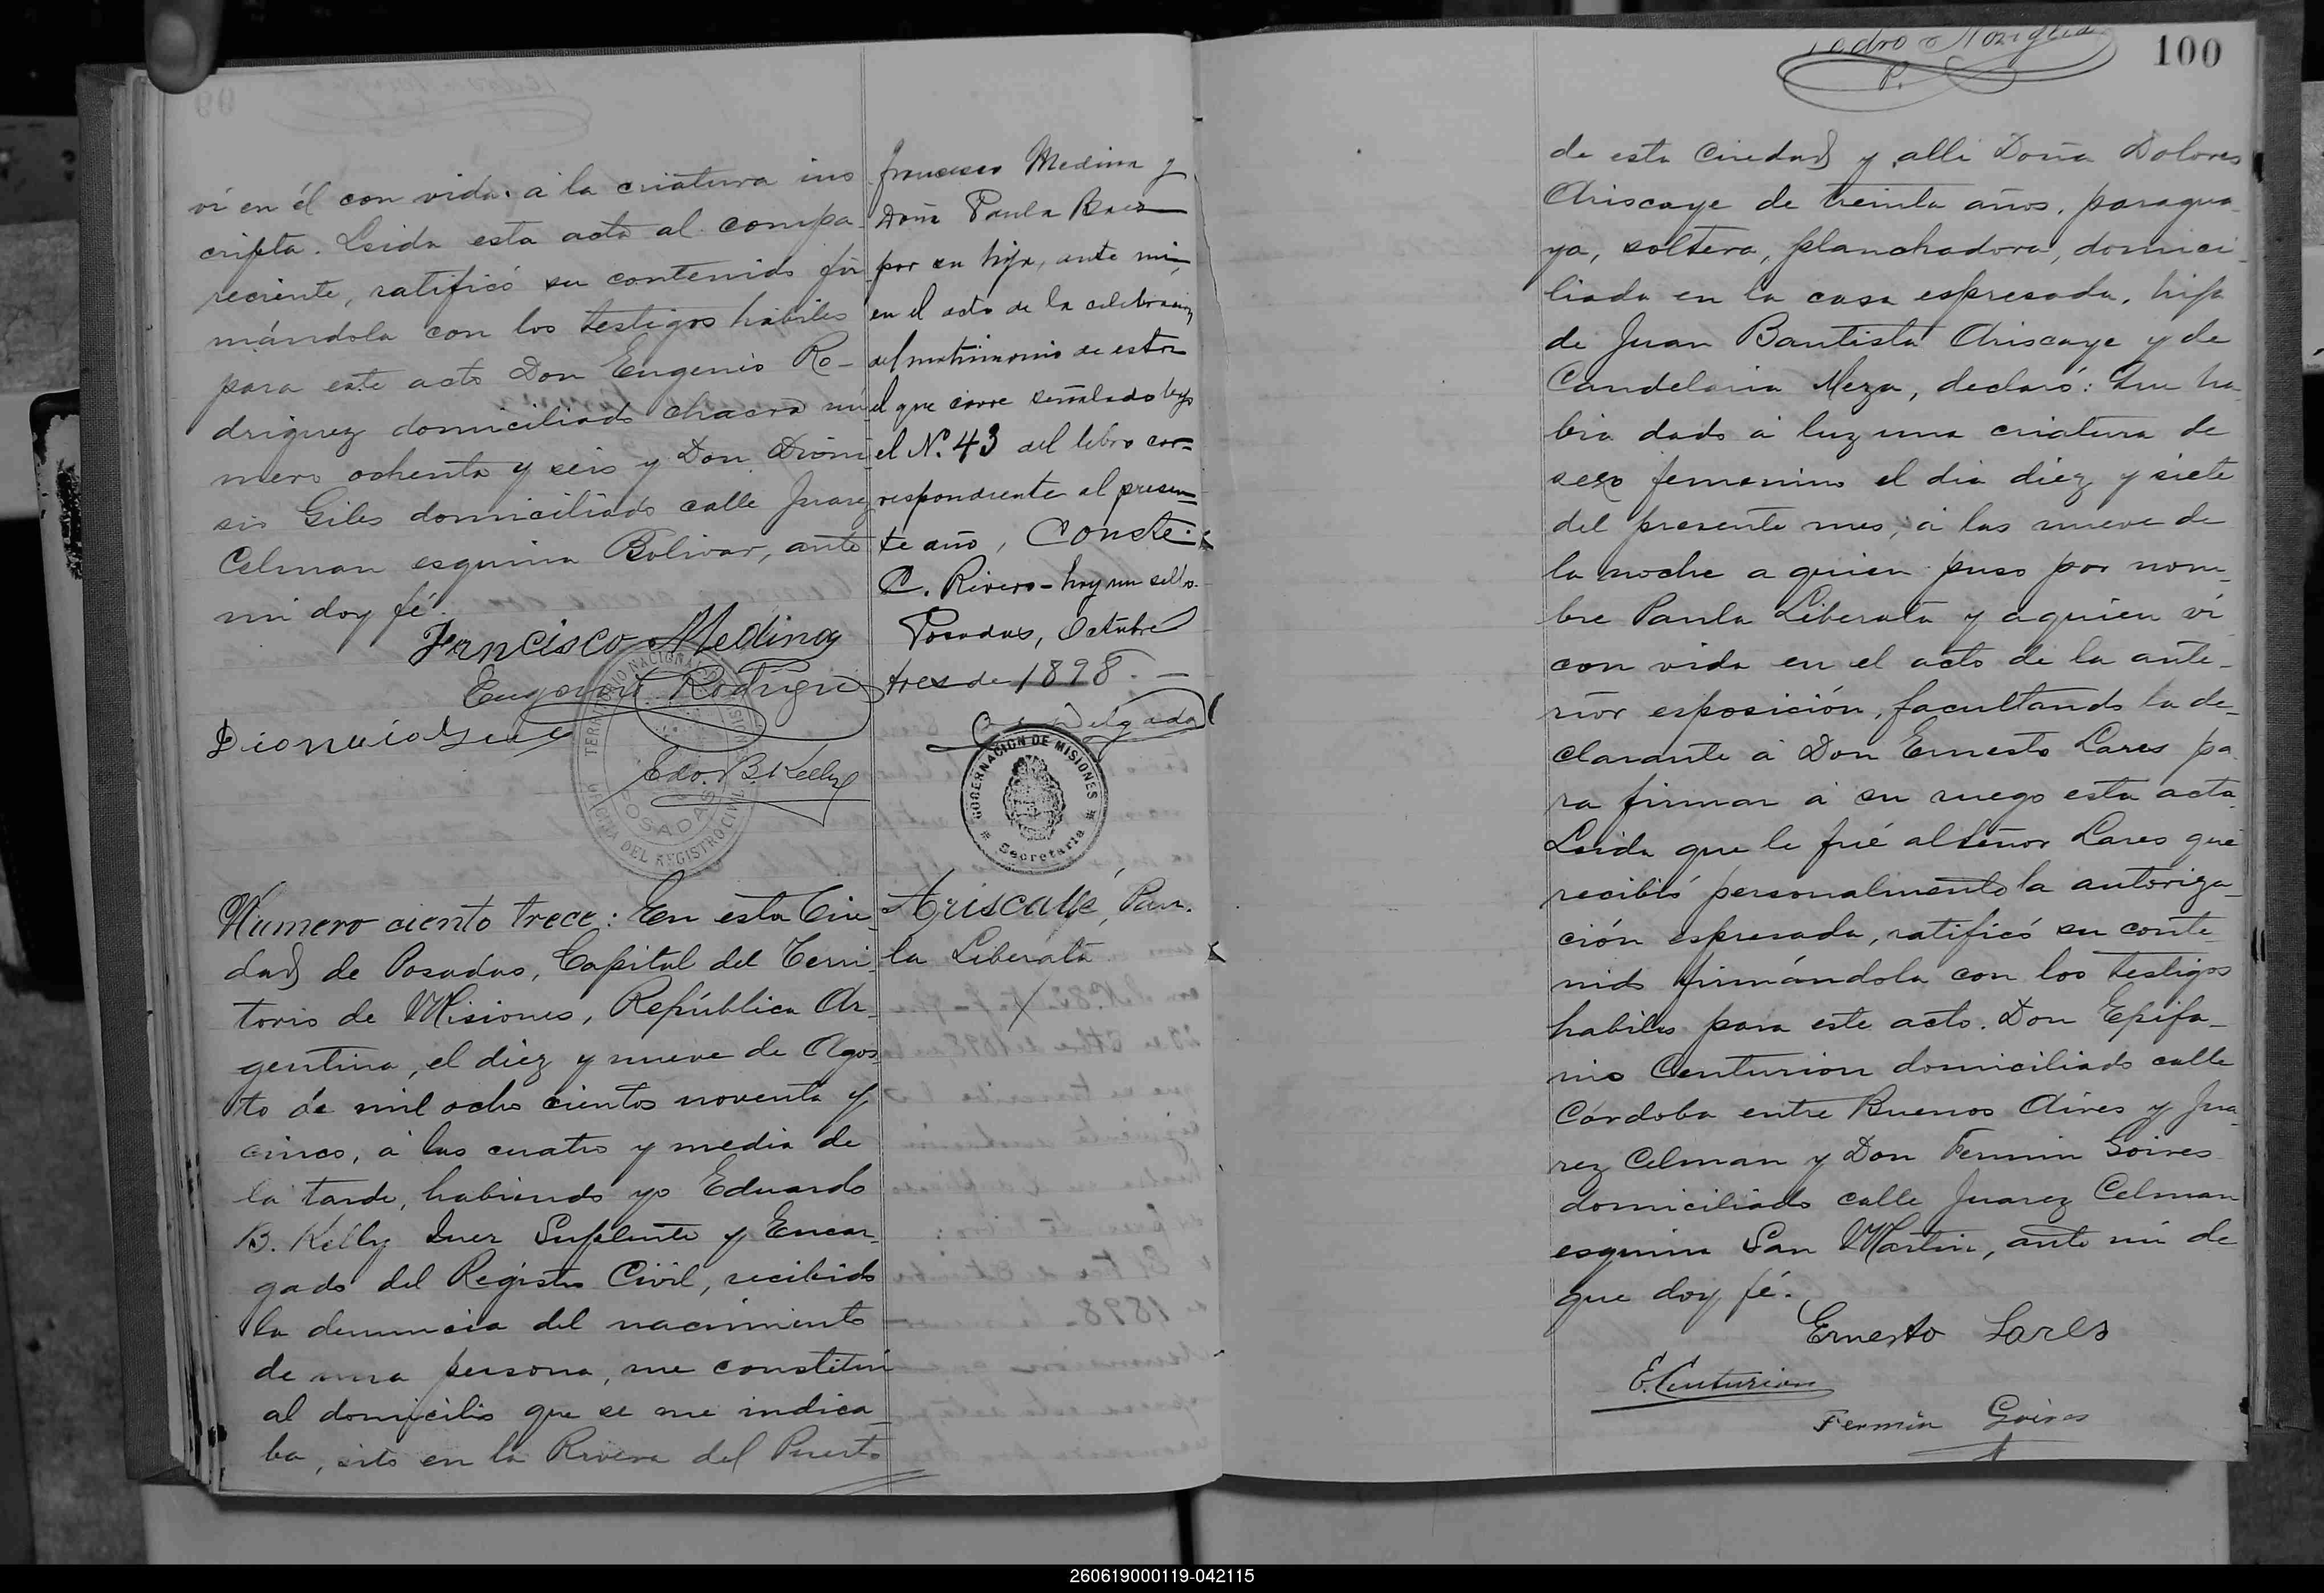 ví en él con vida á la criatura ins
cripta. Leida esta acta al compa-
reciente, ratificó su contenido fir
mándola con los testigos habiles
para este acto Don Eugenio Ro-
driguez domiciliado chacra nú
mero ochenta y seis y Don Dioni
sio Giles domiciliado calle Juarez
Celman esquina Bolivar, ante
mi doy fé.
Francisco Medina
Rodrigue
Edo. B. Kelly
TERRITORIO NACIONAL DE MISIONES
OFICINA DEL REGISTRO CIVIL
POSADAS
Francisco Medina y
Doña Paula Baez
por su hija, ante mi,
en el acto de la celebracion
del matrimonio de estos
el que corre señalado bajo
el Nº. 43 del libro cor=
respondiente al presen=
te año, Conste.
C. Rivero - hay un sello.
Posadas, Octubre
tres de 1898. —
Delgado
GOBERNACION DE MISIONES
Secretaria
Numero ciento trece: En esta Ciu
dad de Posadas, Capital del Terri
torio de Misiones, República Ar-
gentina, el diez y nueve de Agos
to de mil ocho cientos noventa y
cinco, á las cuatro y media de
la tarde, habiendo yo Eduardo
B. Kelly Juez Suplente y Encar
gado del Registro Civil, recibido
la denuncia del nacimiento
de una persona, me constituí
al domicilio que se me indica-
ba, sito en la Rivera del Puerto
Ariscaye, Pau-
la Liberata
100
P.
de esta Ciudad y alli Doña Dolores
Ariscaye de treinta años, paragua
ya, soltera, planchadora, domici
liada en la casa espresada, hija
de Juan Bautista Ariscaye y de
Candelaria Meza, declaró: Que ha
bia dado á luz una criatura de
sexo femenino el dia diez y siete
del presente mes, á las nueve de
la noche a quien puso por nom-
bre Paula Liberata y a quien ví
con vida en el acto de la ante-
rior esposición, facultando la de-
clarante á Don Ernesto Lares pa
ra firmar á su ruego esta acta.
Leida que le fué al Señor Lares que
recibió personalmente la autoriza-
ción espresada, ratificó su conte
nido firmándola con los testigos
habiles para este acto. Don Epifa-
nio Centurion domiciliado calle
Córdoba entre Buenos Aires y Jua
rez Celman y Don Fermin Goires
domiciliado calle Juarez Celman
esquina San Martin, ante mí de
que doy fé.
Ernesto Lares
E. Centurion
Fermin Goires
260619000119-042115